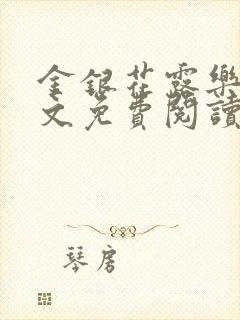 金銀花露樂
文免費閱讀
琴房